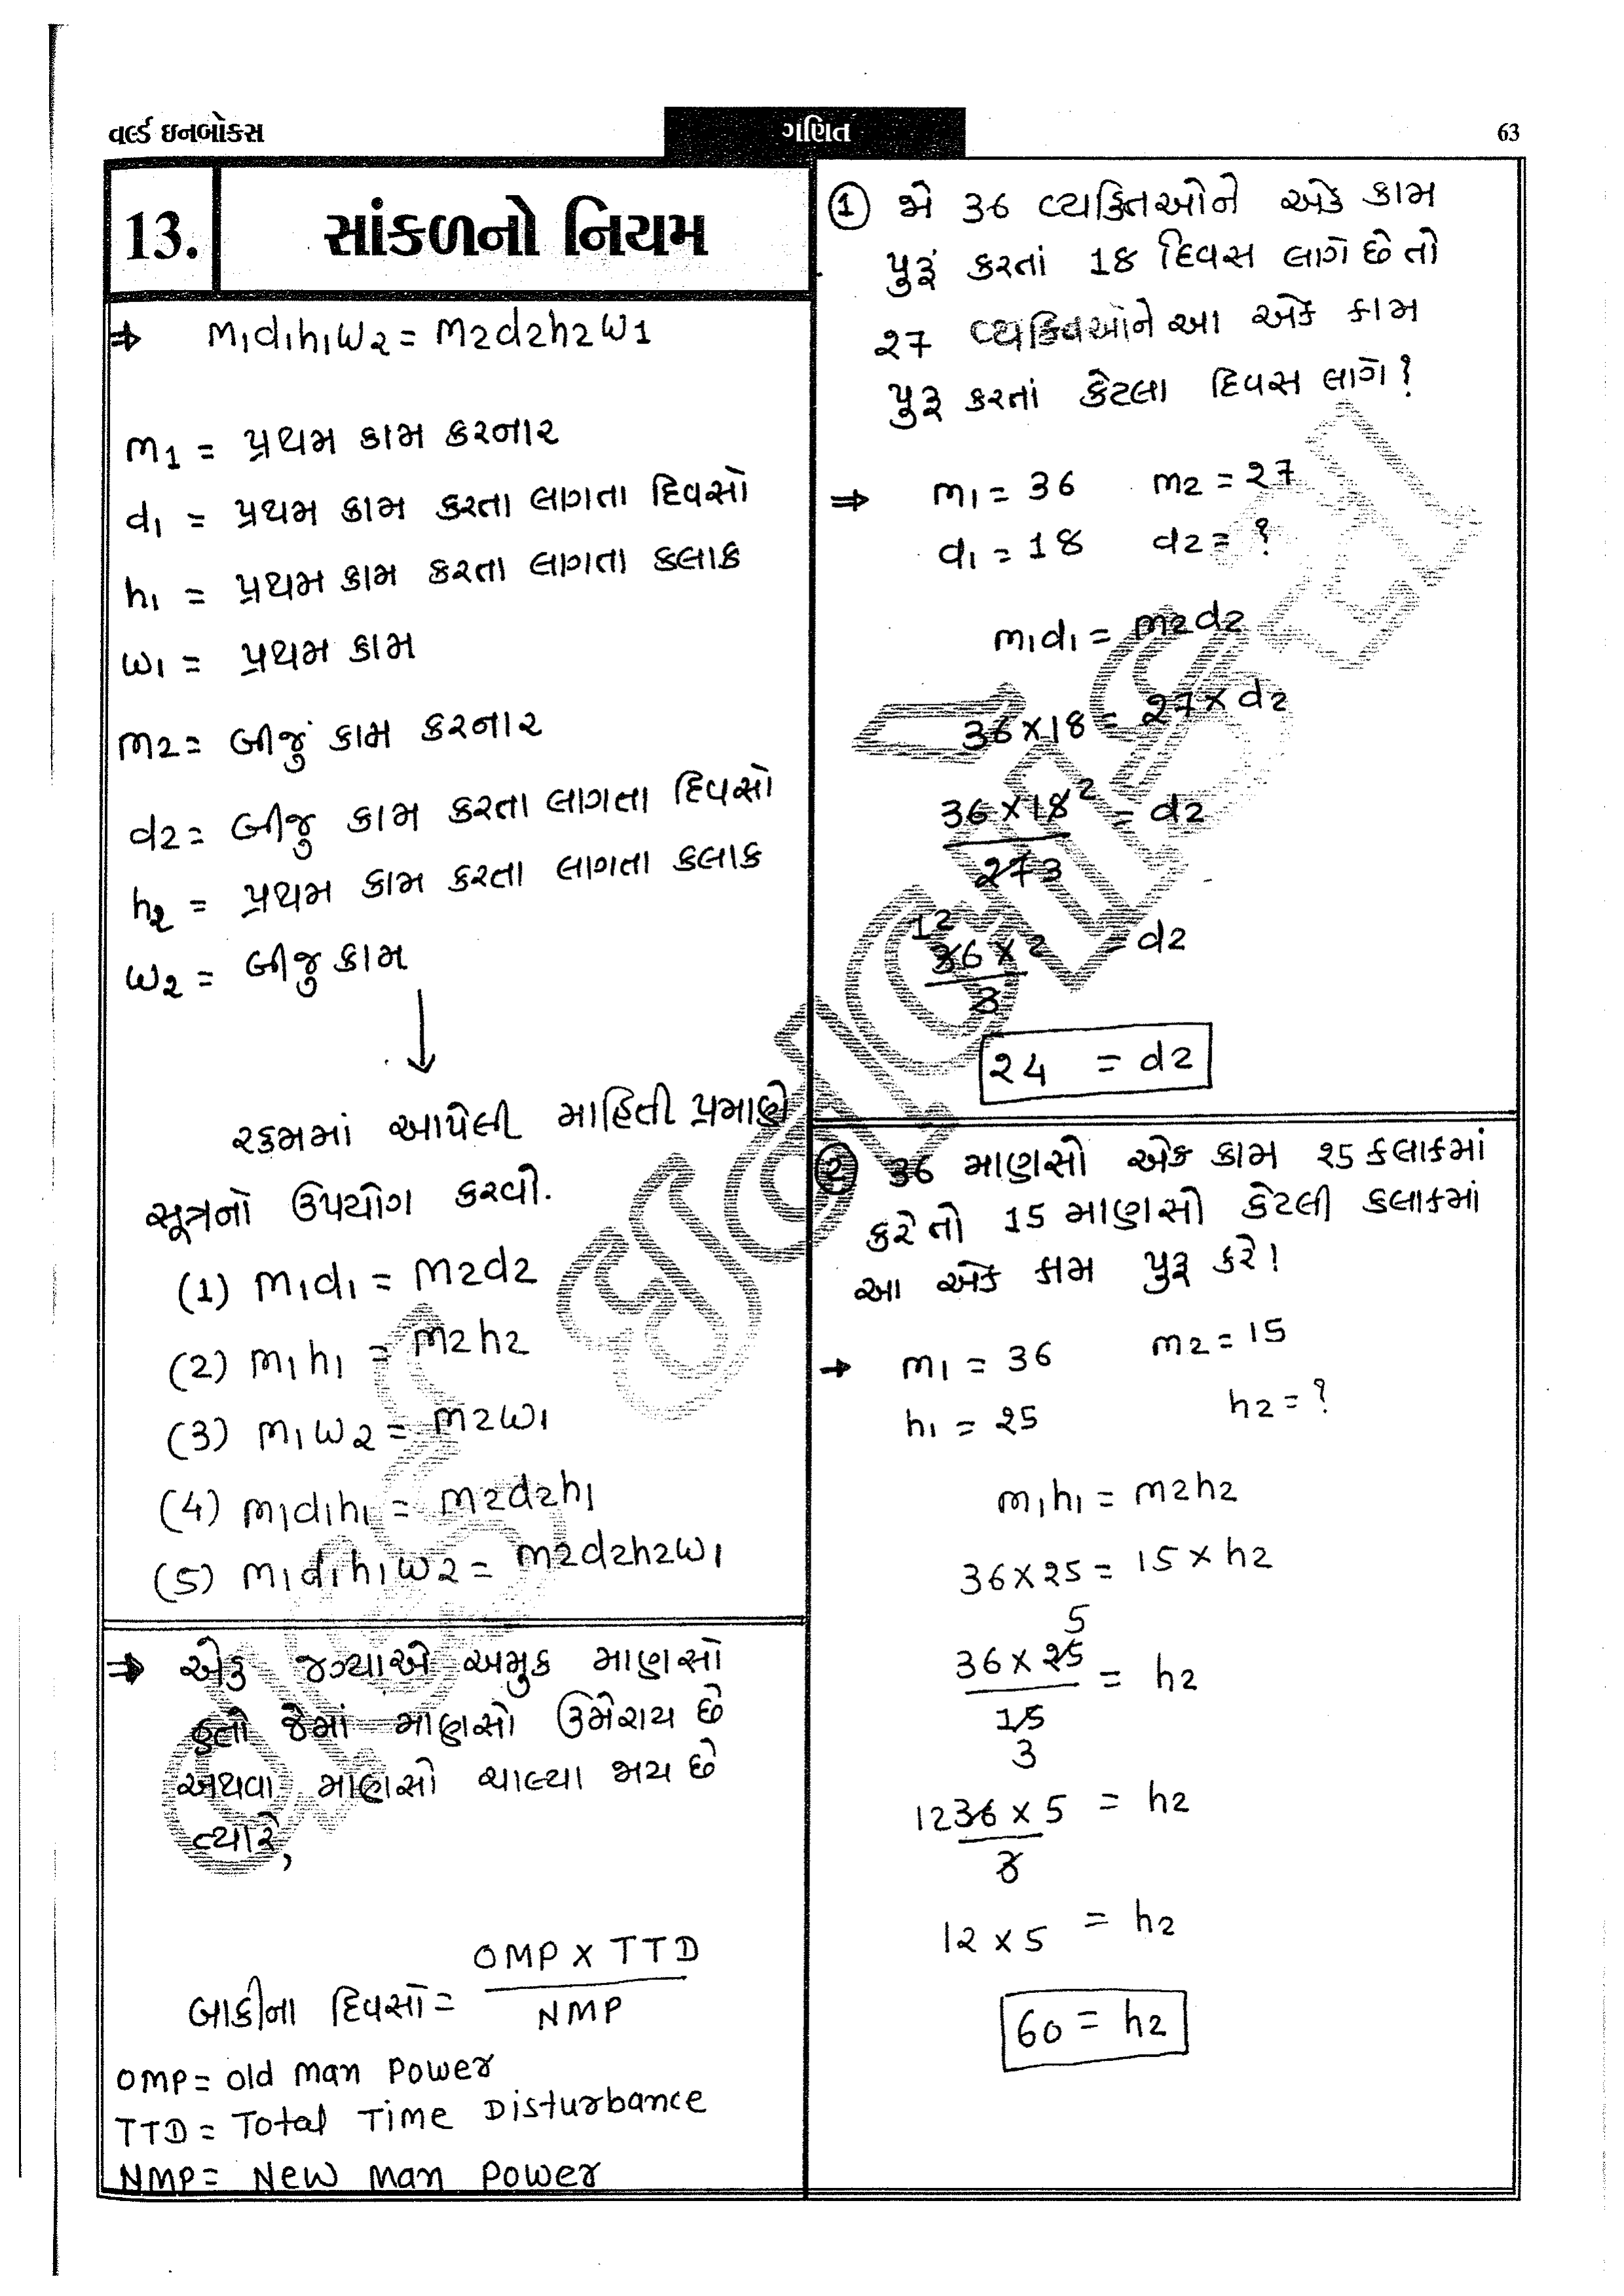 વર્લ્ડ ઇનબોક્સ
ગણિત
63
13.
સાંકળનો નિયમ
⇒ m1d1h1w2 = m2d2h2w1
m1 = પ્રથમ કામ કરનાર
d1 = પ્રથમ કામ કરતા લાગતા દિવસો
h1 = પ્રથમ કામ કરતા લાગતા કલાક
w1 = પ્રથમ કામ
m2 = બીજું કામ કરનાર
d2 = બીજુ કામ કરતા લાગતા દિવસો
h2 = પ્રથમ કામ કરતા લાગતા કલાક
w2 = બીજુ કામ
રકમમાં આપેલી માહિતી પ્રમાણે
સૂત્રનો ઉપયોગ કરવો.
(1) m1d1 = m2d2
(2) m1h1 = m2h2
(3) m1w2 = m2w1
(4) m1d1h1 = m2d2h1
(5) m1d1h1w2 = m2d2h2w1
⇒ એક જગ્યાએ અમુક માણસો
હતો જેમાં માણસો ઉમેરાય છે
અથવા માણસો ચાલ્યા જાય છે
ત્યારે,
OMP x TTD
બાકીના દિવસો =
NMP
OMP = old man power
TTD = Total Time Disturbance
NMP = New man power
① જો 36 વ્યક્તિઓને એક કામ
પુરૂં કરતાં 18 દિવસ લાગે છે તો
૨7 વ્યક્તિઓને આ એક કામ
પુરૂ કરતાં કેટલા દિવસ લાગે?
⇒ m1 = 36 m2 = ૨7
d1 = 18 d2 = ?
m1d1 = m2d2
36 x 18 = ૨7 x d2
36 x 18 2 = d2
૨7 3
12
36 x ૨ = d2
3
૨4 = d2
② 36 માણસો એક કામ ૨5 કલાકમાં
કરે તો 15 માણસો કેટલી કલાકમાં
આ એક કામ પુરૂ કરે!
→ m1 = 36 m2 = 15
h1 = ૨5 h2 = ?
m1h1 = m2h2
36 x ૨5 = 15 x h2
5
36 x ૨5 = h2
15
3
12 36 x 5 = h2
3
1૨ x 5 = h2
60 = h2